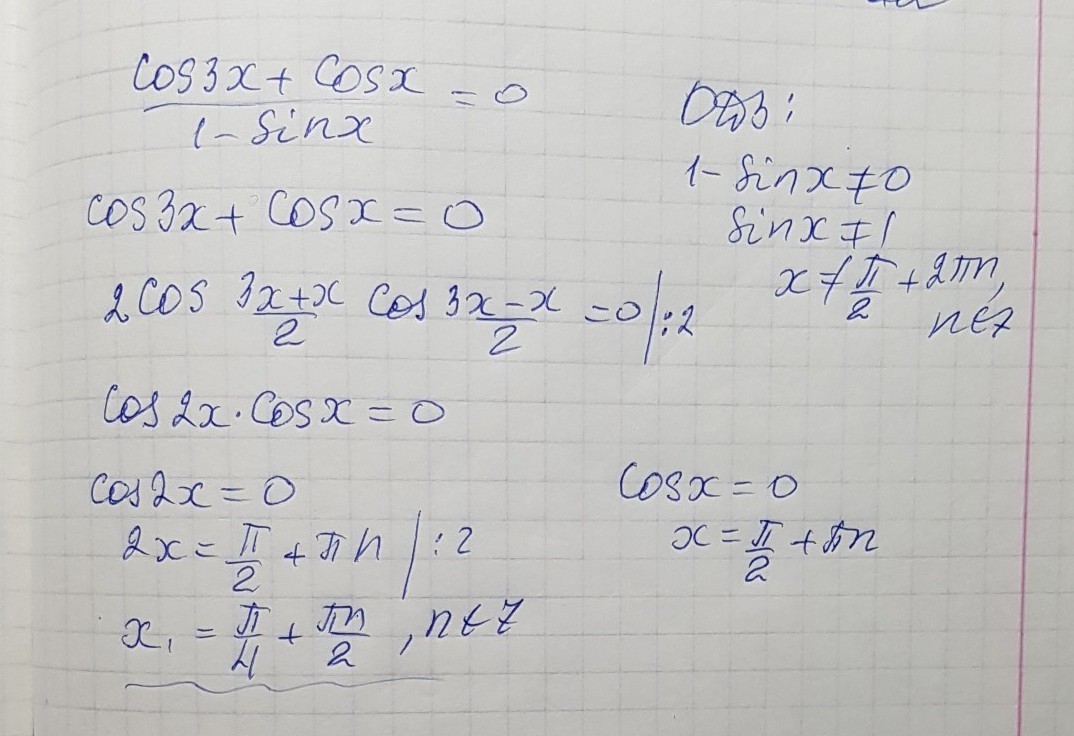 cos3x + cosx / 1 - sinx = 0
ОДЗ:
1 - sinx ≠ 0
sinx ≠ 1
x ≠ π/2 + 2πn,
n∈Z
cos3x + cosx = 0
2cos 3x+x/2 cos 3x-x/2 = 0 |:2
cos2x · cosx = 0
cos2x = 0
2x = π/2 + πn |:2
x₁ = π/4 + πn/2, n∈Z
cosx = 0
x = π/2 + πn